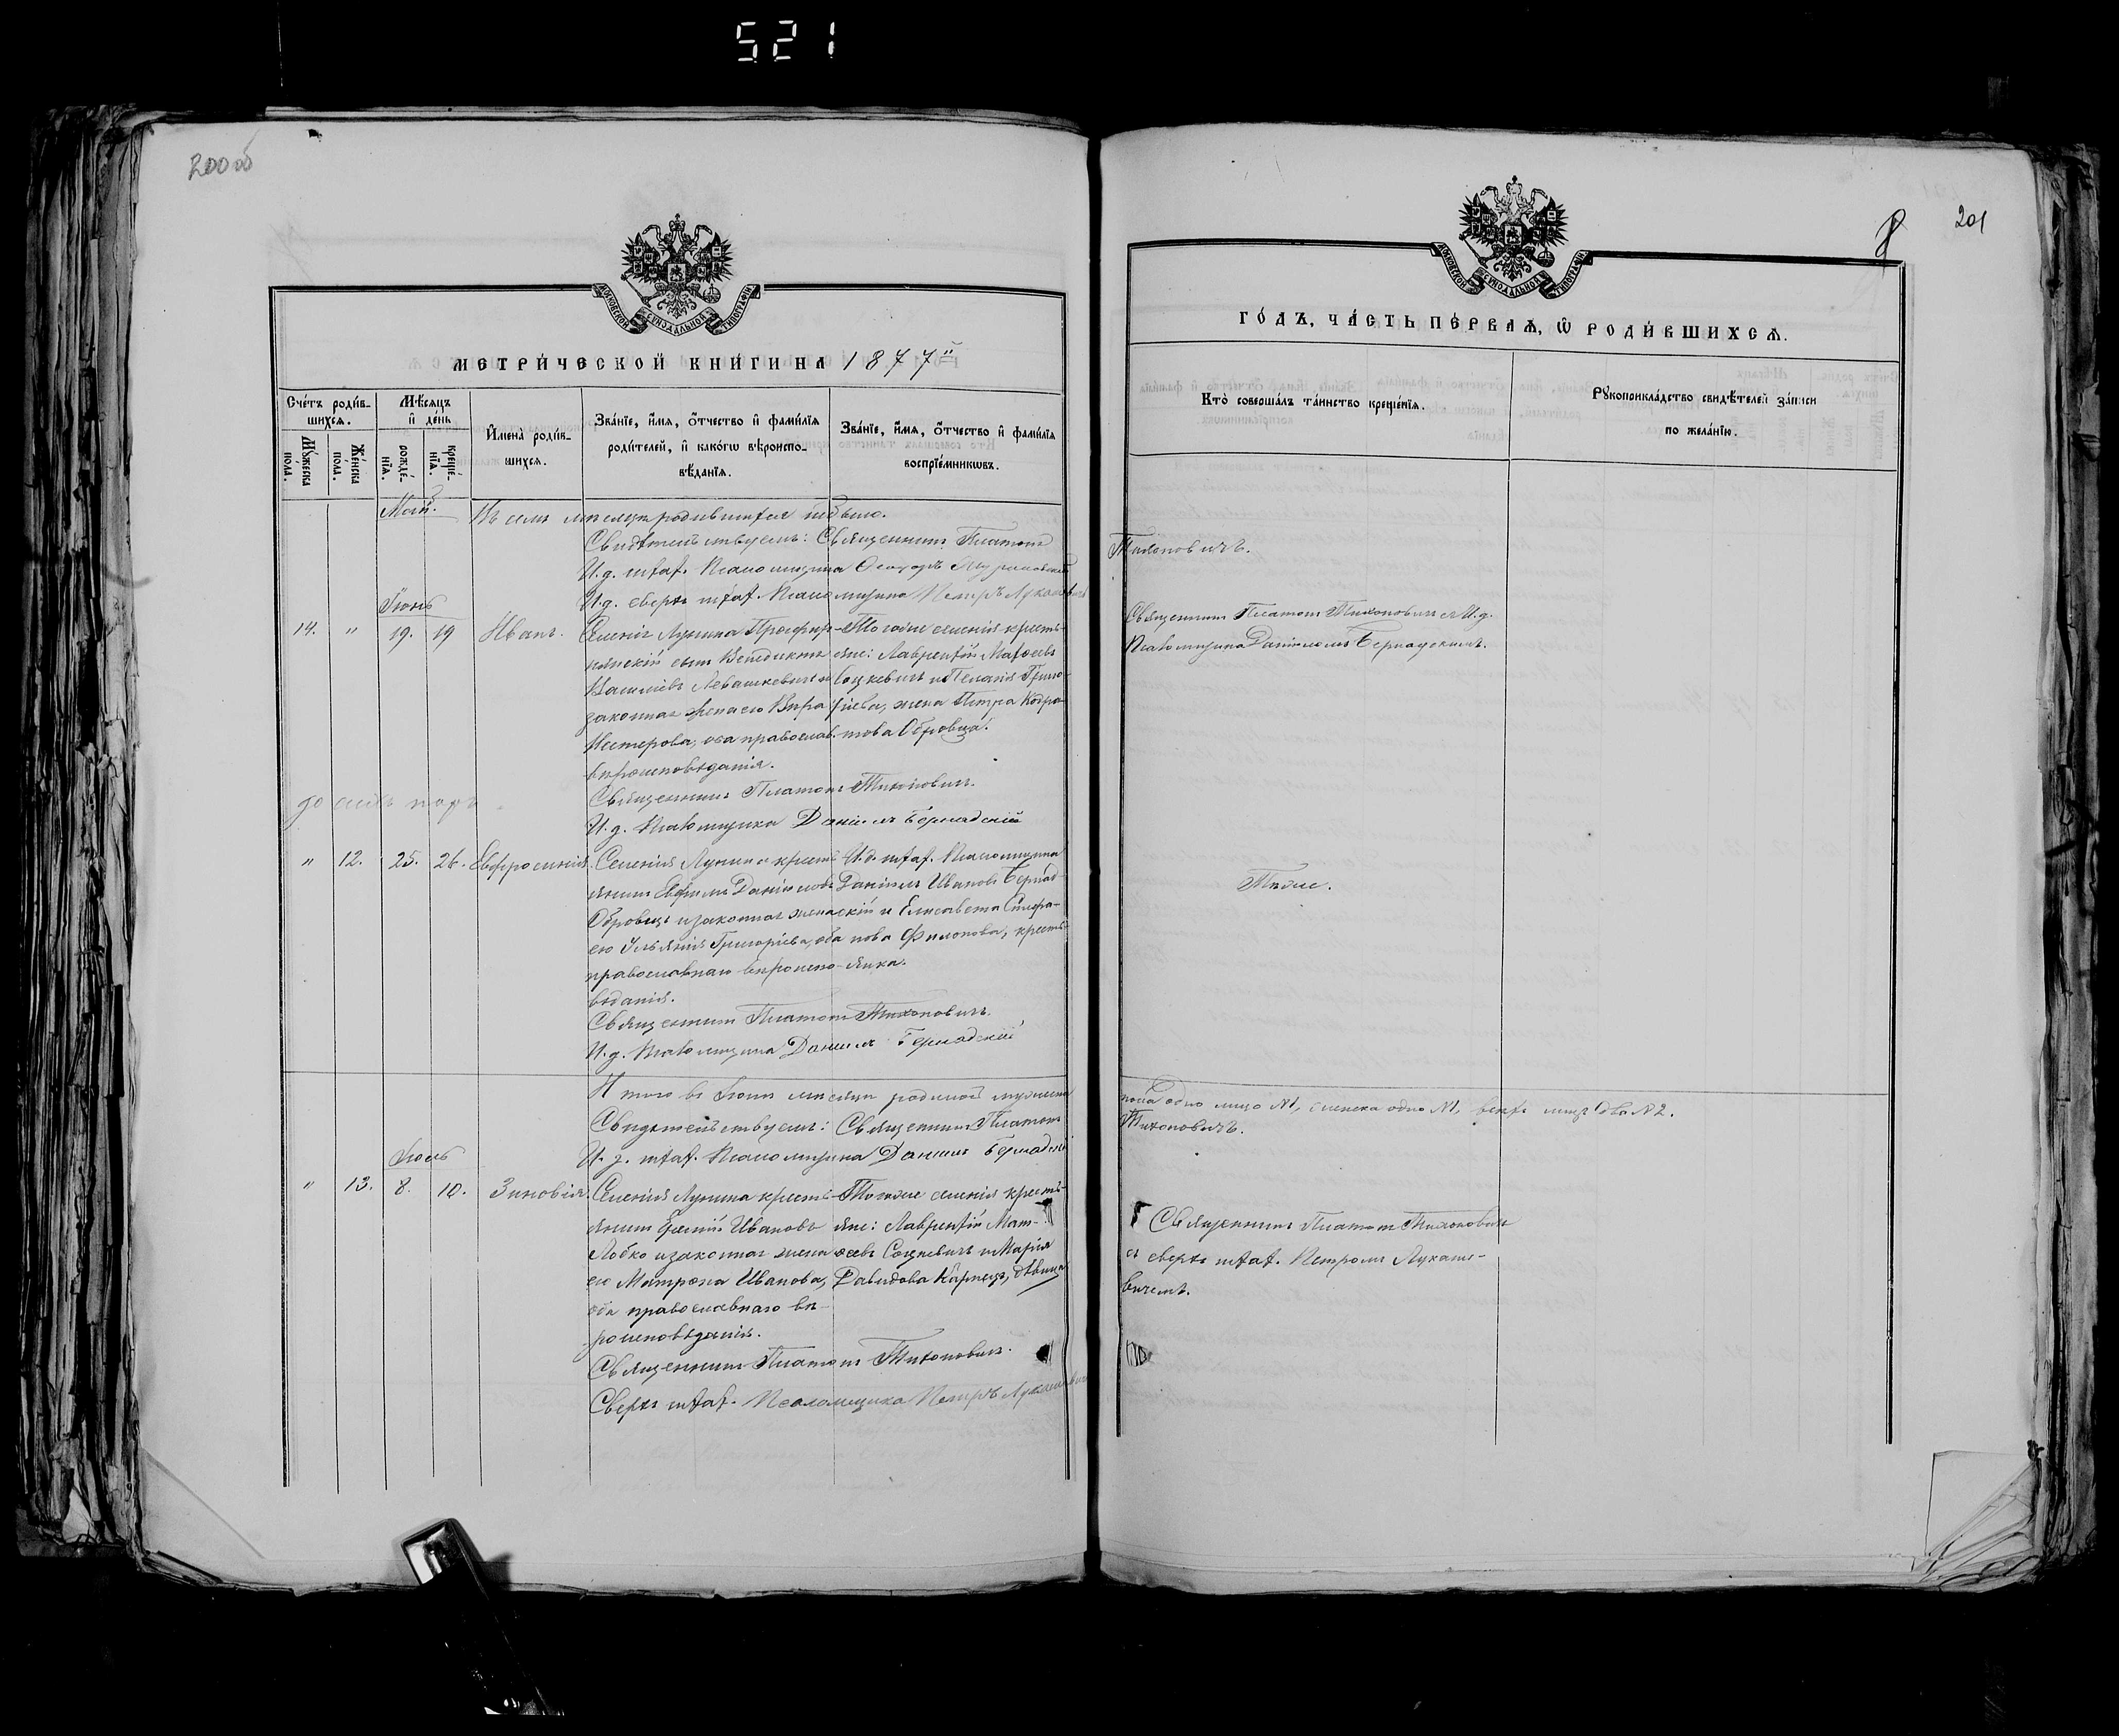 521
200 об
201
МОСКОВСКОЙ СѴНОДАЛЬНОЙ ТИПОГРАФІИ
МЕТРИ́ЧЕСКОЙ КНИ́ГИ НА 1877й
Сче́тъ роди́в-
шихсѧ.
Мꙋ́жеска по́ла.
Же́нска по́ла.
Мѣ́сѧцъ
и де́нь
рожде́-
нїѧ.
креще́-
нїѧ.
И҆мена̀ роди́в-
шихсѧ.
Зва́нїе, и҆́мѧ, ѻ҆́тчество и҆ фами́лїѧ
роди́телей, и҆ како́гѡ вѣроиспо-
вѣ́данїѧ.
Зва́нїе, и҆́мѧ, ѻ҆́тчество и҆ фами́лїѧ
воспрїе́мникѡвъ.
Май.
Въ семъ мѣсяцѣ родившихся не было.
Свидѣтельствуемъ: Священникъ Платонъ
И. д. штат. Псаломщика Ѳеодоръ
И. д. сверхъ штат. Псаломщика Петръ Лукашевичъ
Іюнь
14. " 19. 19 Иванъ.
Селенія Лунина
сынъ Венедиктъ
Васильевъ Левашкевичъ и
законная жена его Вѣра
Нестерова, оба православ.
вѣроисповѣданія.
Того же селенія кресть-
яне: Лаврентій Матѳеевъ
Соцкевичъ и Пелагія Григо-
ріева, жена Петра Кодра-
това Обровца.
Священникъ Платонъ Тихоновичъ.
И. д. Псаломщика Даніилъ Бернадскій
" 12. 25. 26. Евфросинія.
Селенія Лунина кресть-
янинъ Евфимъ Даніиловъ
Обровецъ и законная жена
его Ульянія Григоріева, оба
православнаго вѣроиспо-
вѣданія.
И. д. штат. Псаломщика
Даніилъ Ивановъ Бернад-
скій и Елисавета
нова Филонова, кресть-
янка.
Священникъ Платонъ Тихоновичъ.
И. д. Псаломщика Даніилъ Бернадскій
Итого въ Іюнѣ мѣсяцѣ родилось мужеска
Свидѣтельствуемъ: Священникъ Платонъ
И. д. штат. Псаломщика Даніилъ Бернадскій
Іюль
" 13. 8. 10. Зиновія.
Селенія Лунина кресть-
янинъ Ивановъ
Лобко и законная жена
его Матрона Иванова,
оба православнаго вѣ-
роисповѣданія.
Того же селенія кресть-
яне: Лаврентій Мат-
ѳеевъ Соцкевичъ и Марія
Давидова Карпецъ, дѣвица
Священникъ Платонъ Тихоновичъ.
Сверхъ штат. Псаломщика Петръ Лукашевичъ
МОСКОВСКОЙ СѴНОДАЛЬНОЙ ТИПОГРАФІИ
ГО́ДЪ, ЧА́СТЬ ПЕ́РВАѦ, Ѿ РОДИ́ВШИХСѦ.
Кто̀ соверша́лъ та́инство креще́нїѧ.
Рꙋкоприкла́дство свидѣ́телей за́писи
по жела́нїю.
Тихоновичъ.
Священникъ Платонъ Тихоновичъ съ И. д.
Псаломщика Даніиломъ Бернадскимъ.
Тѣ же.
пола одно лице №1, женска одно №1, всѣхъ лицъ два №2.
Тихоновичъ.
Священникъ Платонъ Тихоновичъ
съ сверхъ штат. Петромъ Лукаше-
вичемъ.